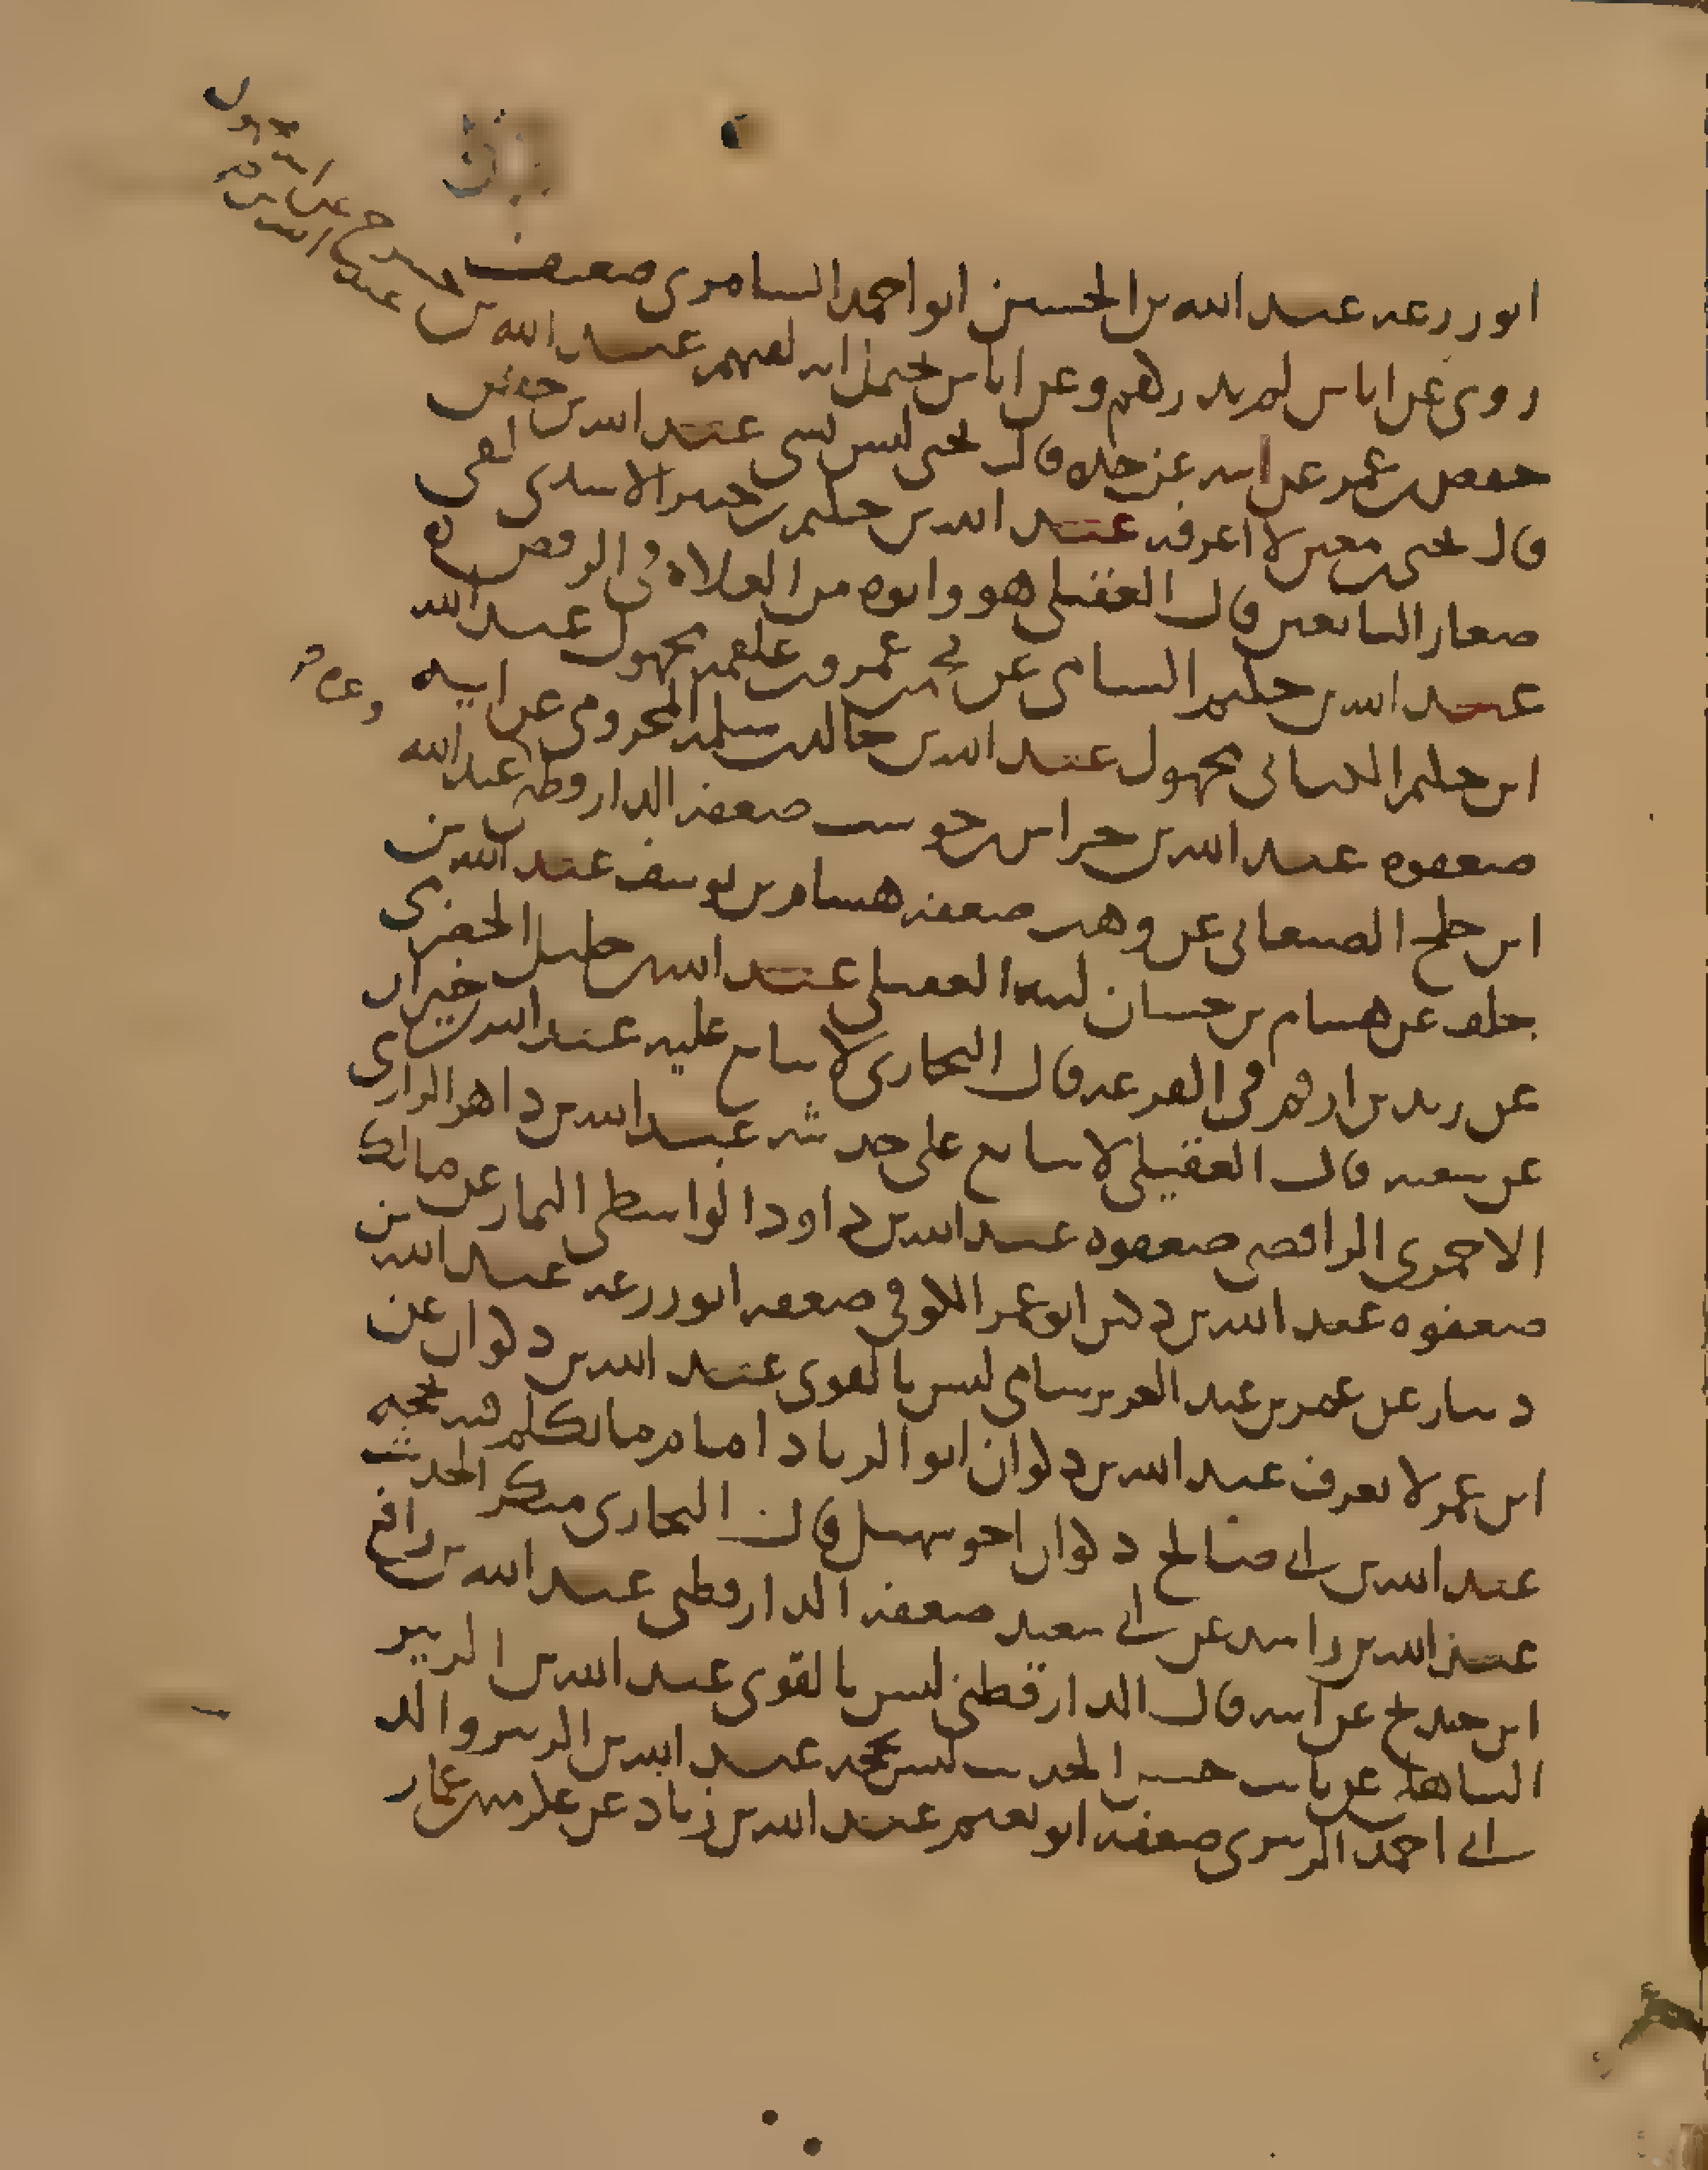 ابو زرعه عبد الله بن الحسين ابو احمد السامري ضعيف
روى عن اناس لم يدركهم وعن اناس يحتمل انه لقيهم عبد الله بن
حفص بن عمر عن ابيه عن جده قال يحيى ليس بشي عبد الله بن حفص
قال يحيى بن معين لا اعرفه عبد الله بن حكيم بن جبير الاسدي لقي
صغار التابعين قال العقيلي هو وابوه من الغلاة في الرفض ه
عبد الله بن حكيم الشامي عن محمد بن عمرو بن علقمه مجهول عبد الله
ابن حكيم الكناني مجهول عبد الله بن خالد بن سلمه المخزومي عن ابيه
ضعفوه عبد الله بن خراش بن حوشب ضعفه الدارقطني عبد الله
ابن خلج الصنعاني عن وهب ضعفه هشام بن يوسف عبد الله بن
خلف عن هشام بن حسان لينه العقيلي عبد الله بن خليل الحضرمي
عن زيد بن ارقم في القرعه قال البخاري لا يتابع عليه عبد الله بن خيران
عن شعبه قال العقيلي لا يتابع على حديثه عبد الله بن داهر الرازي
الاحمري الرافضي ضعفوه عبد الله بن داود الواسطي التمار عن مالك
ضعفوه عبد الله بن دكين ابو عمر الكوفي ضعفه ابو زرعه عبد الله بن
دينار عن عمر بن عبد العزيز شامي ليس بالقوي عبد الله بن ذكوان عن
ابن عمر لا يعرف عبد الله بن ذكوان ابو الزناد امام ما تكلم فيه بحجه
عبد الله بن ابي صالح ذكوان اخو سهيل قال البخاري منكر الحديث
عبد الله بن راشد عن ابي سعيد ضعفه الدارقطني عبد الله بن رافع
ابن خديج عن ابيه قال الدارقطني ليس بالقوي عبد الله بن الزبير
الباهلي عن ثابت حسن الحديث ليس بحجه عبد الله بن الزبير والد
ابي احمد الزبيري ضعفه ابو نعيم عبد الله بن زياد عن عكرمه بن عمار